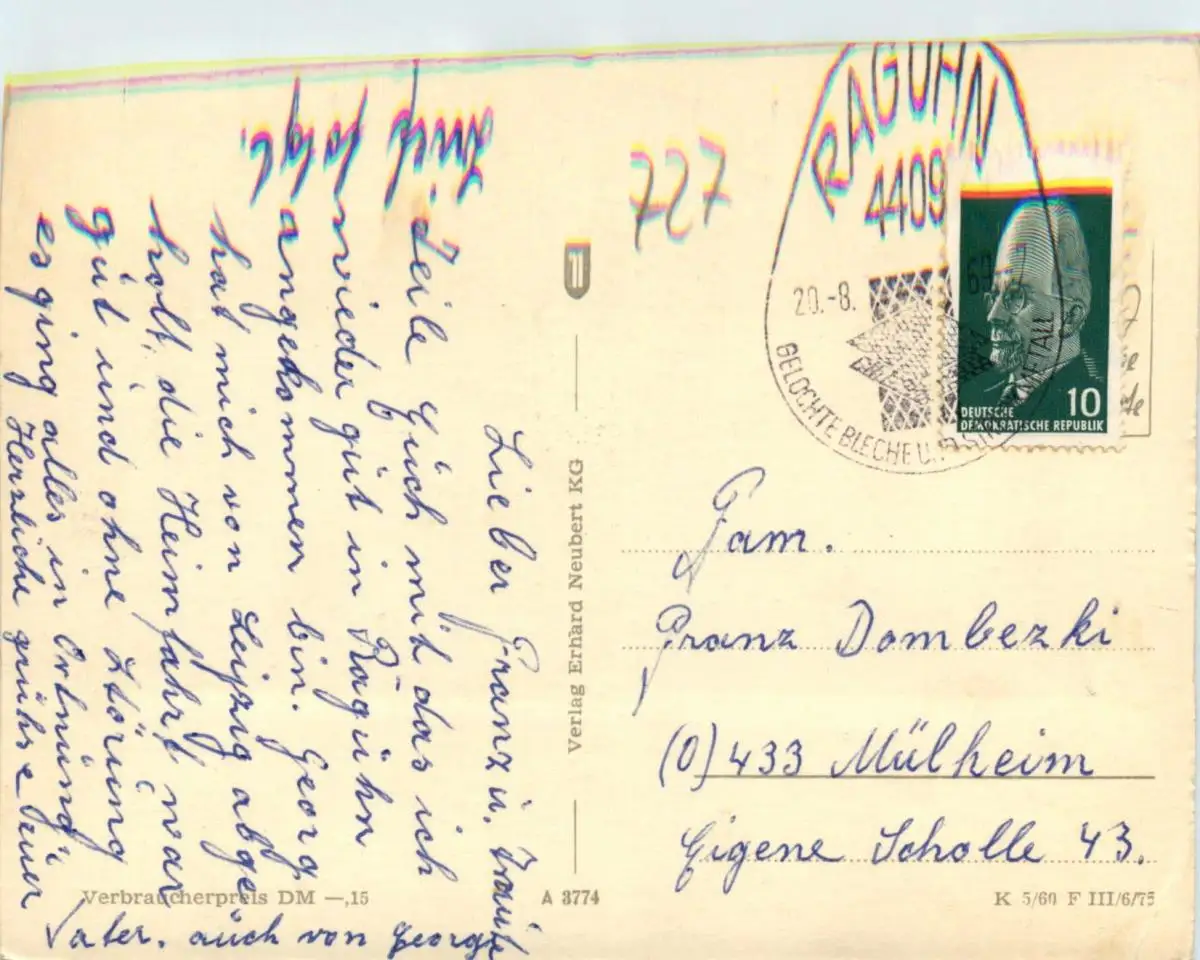 Lieber Franz u. Traut
Teile Euch mit das ich
wieder gut in Raguhn
angekommen bin. Georg
hat mich von Leipzig abge
holt, die Heimfahrt war
gut und ohne Störung
es ging alles in Ortnung
Herzliche grühse Euer
Vater. auch von Georg
Brief
folgt.
727
RAGUHN
4409
20.-8. 69
GELOCHTE BLECHE U. METALL
10
DEUTSCHE
DEMOKRATISCHE REPUBLIK
Verlag Erhard Neubert KG
Fam.
Franz Dombezki
(0) 433 Mülheim
Eigene Scholle 43.
Verbraucherpreis DM —,15
A 3774
K 5/60 F III/6/75